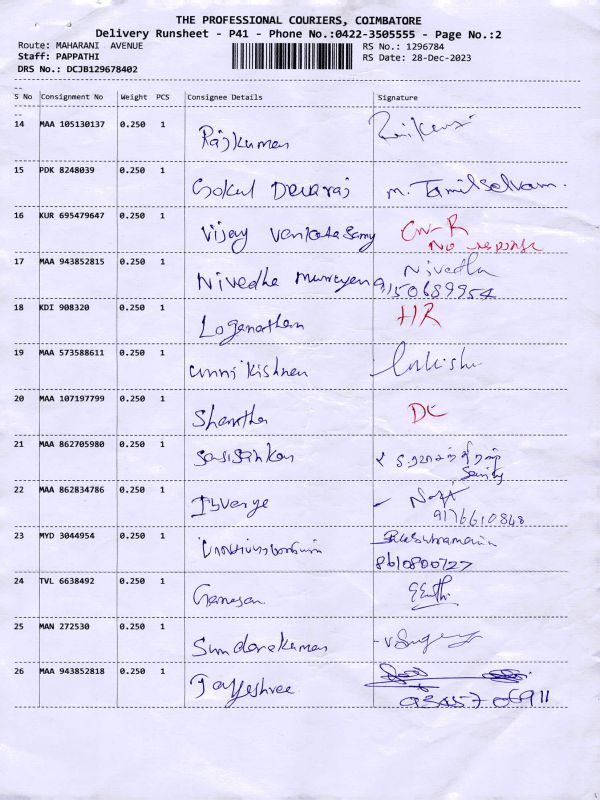 THE PROFESSIONAL COURIERS, COIMBATORE
Delivery Runsheet - P41 - Phone No.:0422-3505555 - Page No.:2
Route: MAHARANI AVENUE RS No.: 1296784
Staff: PAPPATHI RS Date: 28-Dec-2023
DRS No.: DCJB129678402
S No Consignment No Weight PCS Consignee Details Signature
14 MAA 105130137 0.250 1 Rajkumar
15 PDK 8248039 0.250 1 Gokul Devaraj m. Tamilselvam.
16 KUR 695479647 0.250 1 Vijay Venkatasamy CN-R
No response
17 MAA 943852815 0.250 1 Nivedha Nivedha
9150689954
18 KDI 908320 0.250 1 Loganathan HR
19 MAA 573588611 0.250 1 unni kishnan
20 MAA 107197799 0.250 1 Shantha DC
21 MAA 862705980 0.250 1 Sasisankar
22 MAA 862834786 0.250 1
9176610848
23 MYD 3044954 0.250 1 Balasubramanian
8610800727
24 TVL 6638492 0.250 1 Ganesan
25 MAN 272530 0.250 1 Sundarakumar
26 MAA 943852818 0.250 1 Jayashree